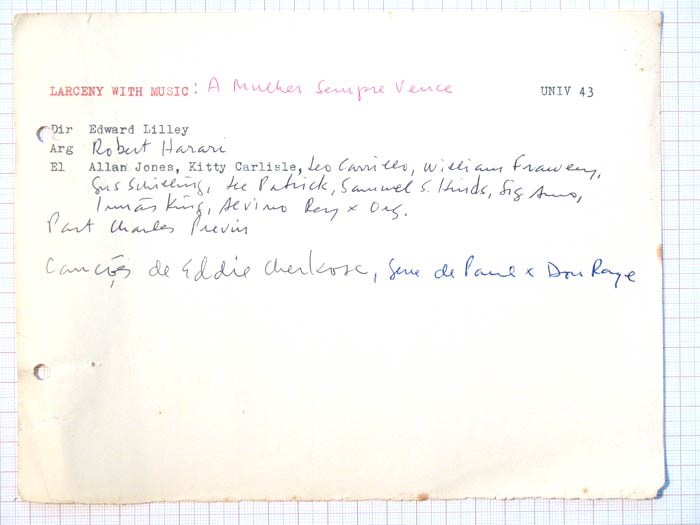 LARCENY WITH MUSIC: A Mulher Sempre Vence UNIV 43
Dir Edward Lilley
Arg Robert Harari
El Allan Jones, Kitty Carlisle, Leo Carrillo, William Frawley,
Gus Schilling, Lee Patrick, Samuel S. Hinds, Sig Arno,
Irmãs King, Alvino Rey x Orq.
Part Charles Previn
Canções de Eddie Cherkose, Gene de Paul x Don Raye